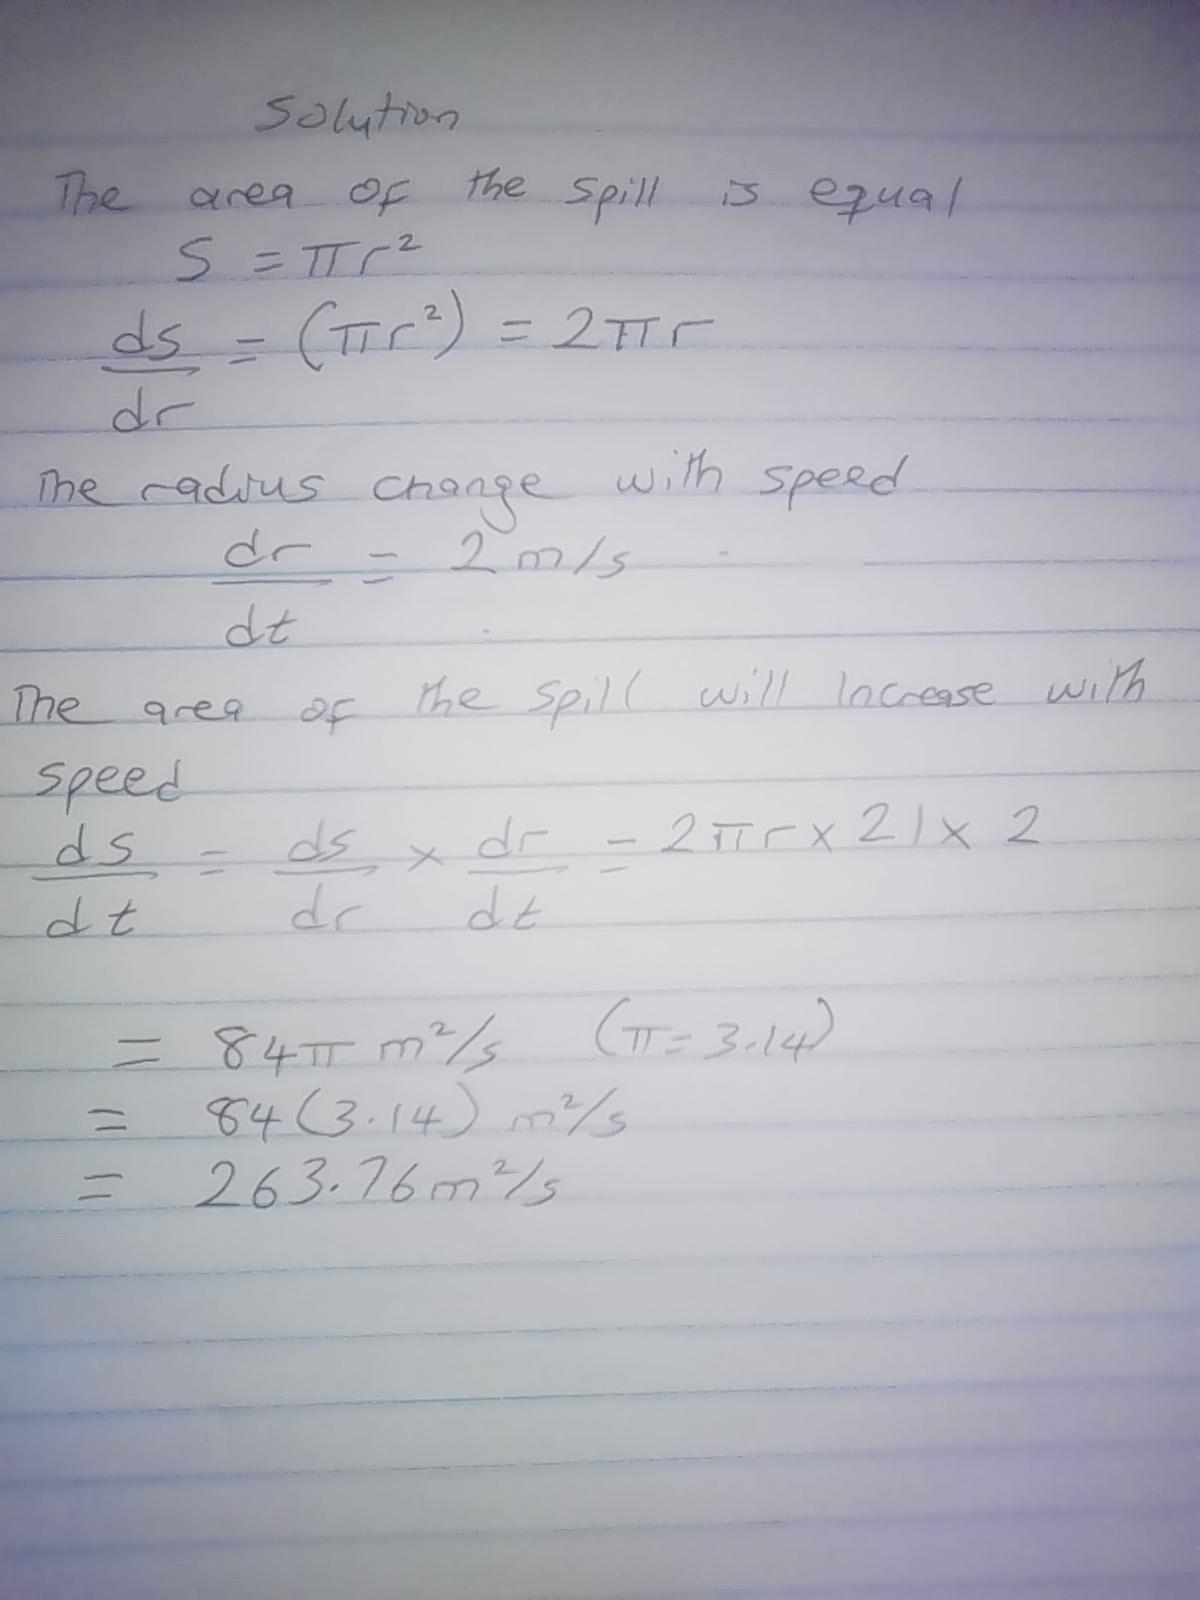 Solution
The area of the spill is equal
S = πr²
ds/dr = (πr²) = 2πr
The radius change with speed
dr/dt = 2 m/s
The area of the spill will increase with
speed
ds/dt = ds/dr × dr/dt = 2πr × 21 × 2
= 84π m²/s (π = 3.14)
= 84(3.14) m²/s
= 263.76 m²/s